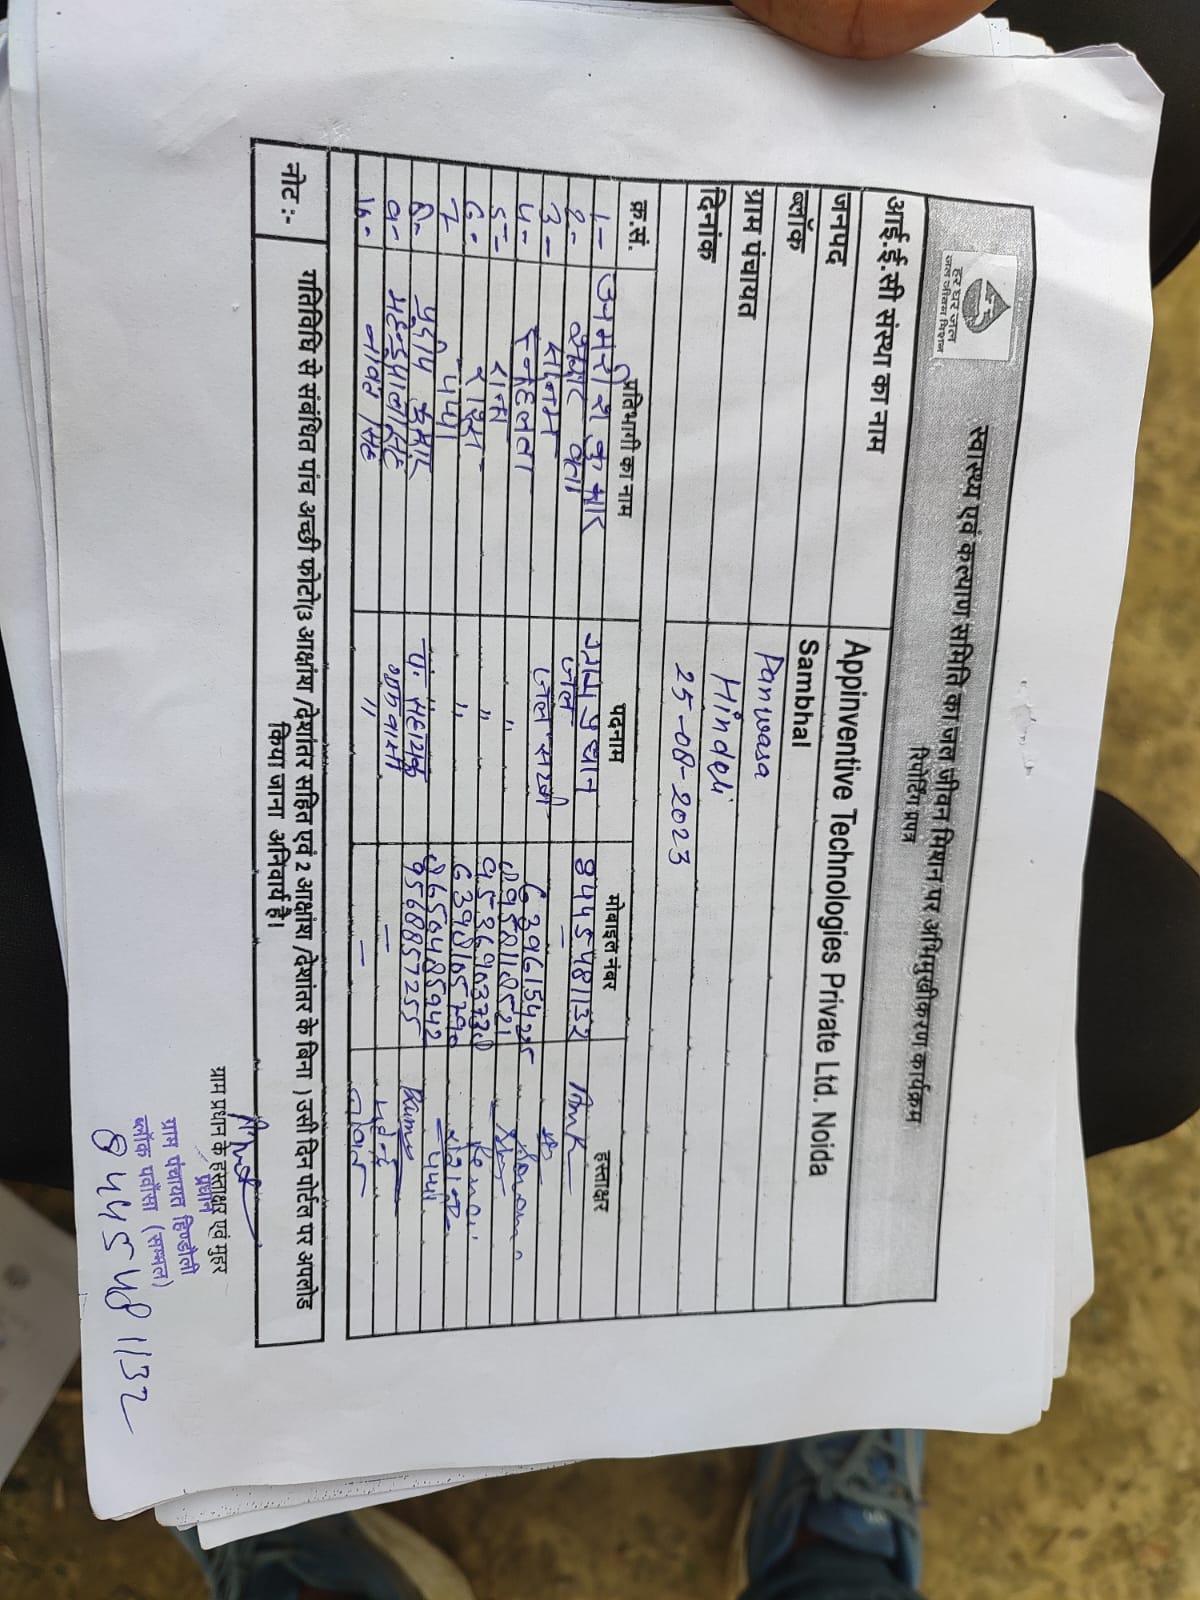 हर घर जल
जल जीवन मिशन
स्वास्थ्य एवं कल्याण समिति का जल जीवन मिशन पर अभिमुखीकरण कार्यक्रम
रिपोर्टिंग प्रपत्र
आई.ई.सी संस्था का नाम Appinventive Technologies Private Ltd. Noida
जनपद Sambhal
ब्लॉक Panwasa
ग्राम पंचायत Hindeli
दिनांक 25-08-2023
क्र.सं. प्रतिभागी का नाम पदनाम मोबाइल नंबर हस्ताक्षर
१- अमरीश कुमार ग्राम प्रधान 8445481132
२- जल -
३- सोनम जल सखी 6396154225
४- स्नेहलता "
५- " 9536903730
6- " 6398105790
7 पुष्पा "
8- प्रदीप कुमार पं. सहायक 9568857255
९- महेन्द्रपाल सिंह ग्रामवासी - महेन्द्र
१०- " -
नोट :- गतिविधि से संबंधित पांच अच्छी फोटो(3 आक्षांश /देशांतर सहित एवं 2 आक्षांश /देशांतर के बिना ) उसी दिन पोर्टल पर अपलोड
किया जाना अनिवार्य है।
ग्राम प्रधान के हस्ताक्षर एवं मुहर
प्रधान
ग्राम पंचायत हिण्डोली
ब्लॉक पवाँसा (सम्भल)
8445481132